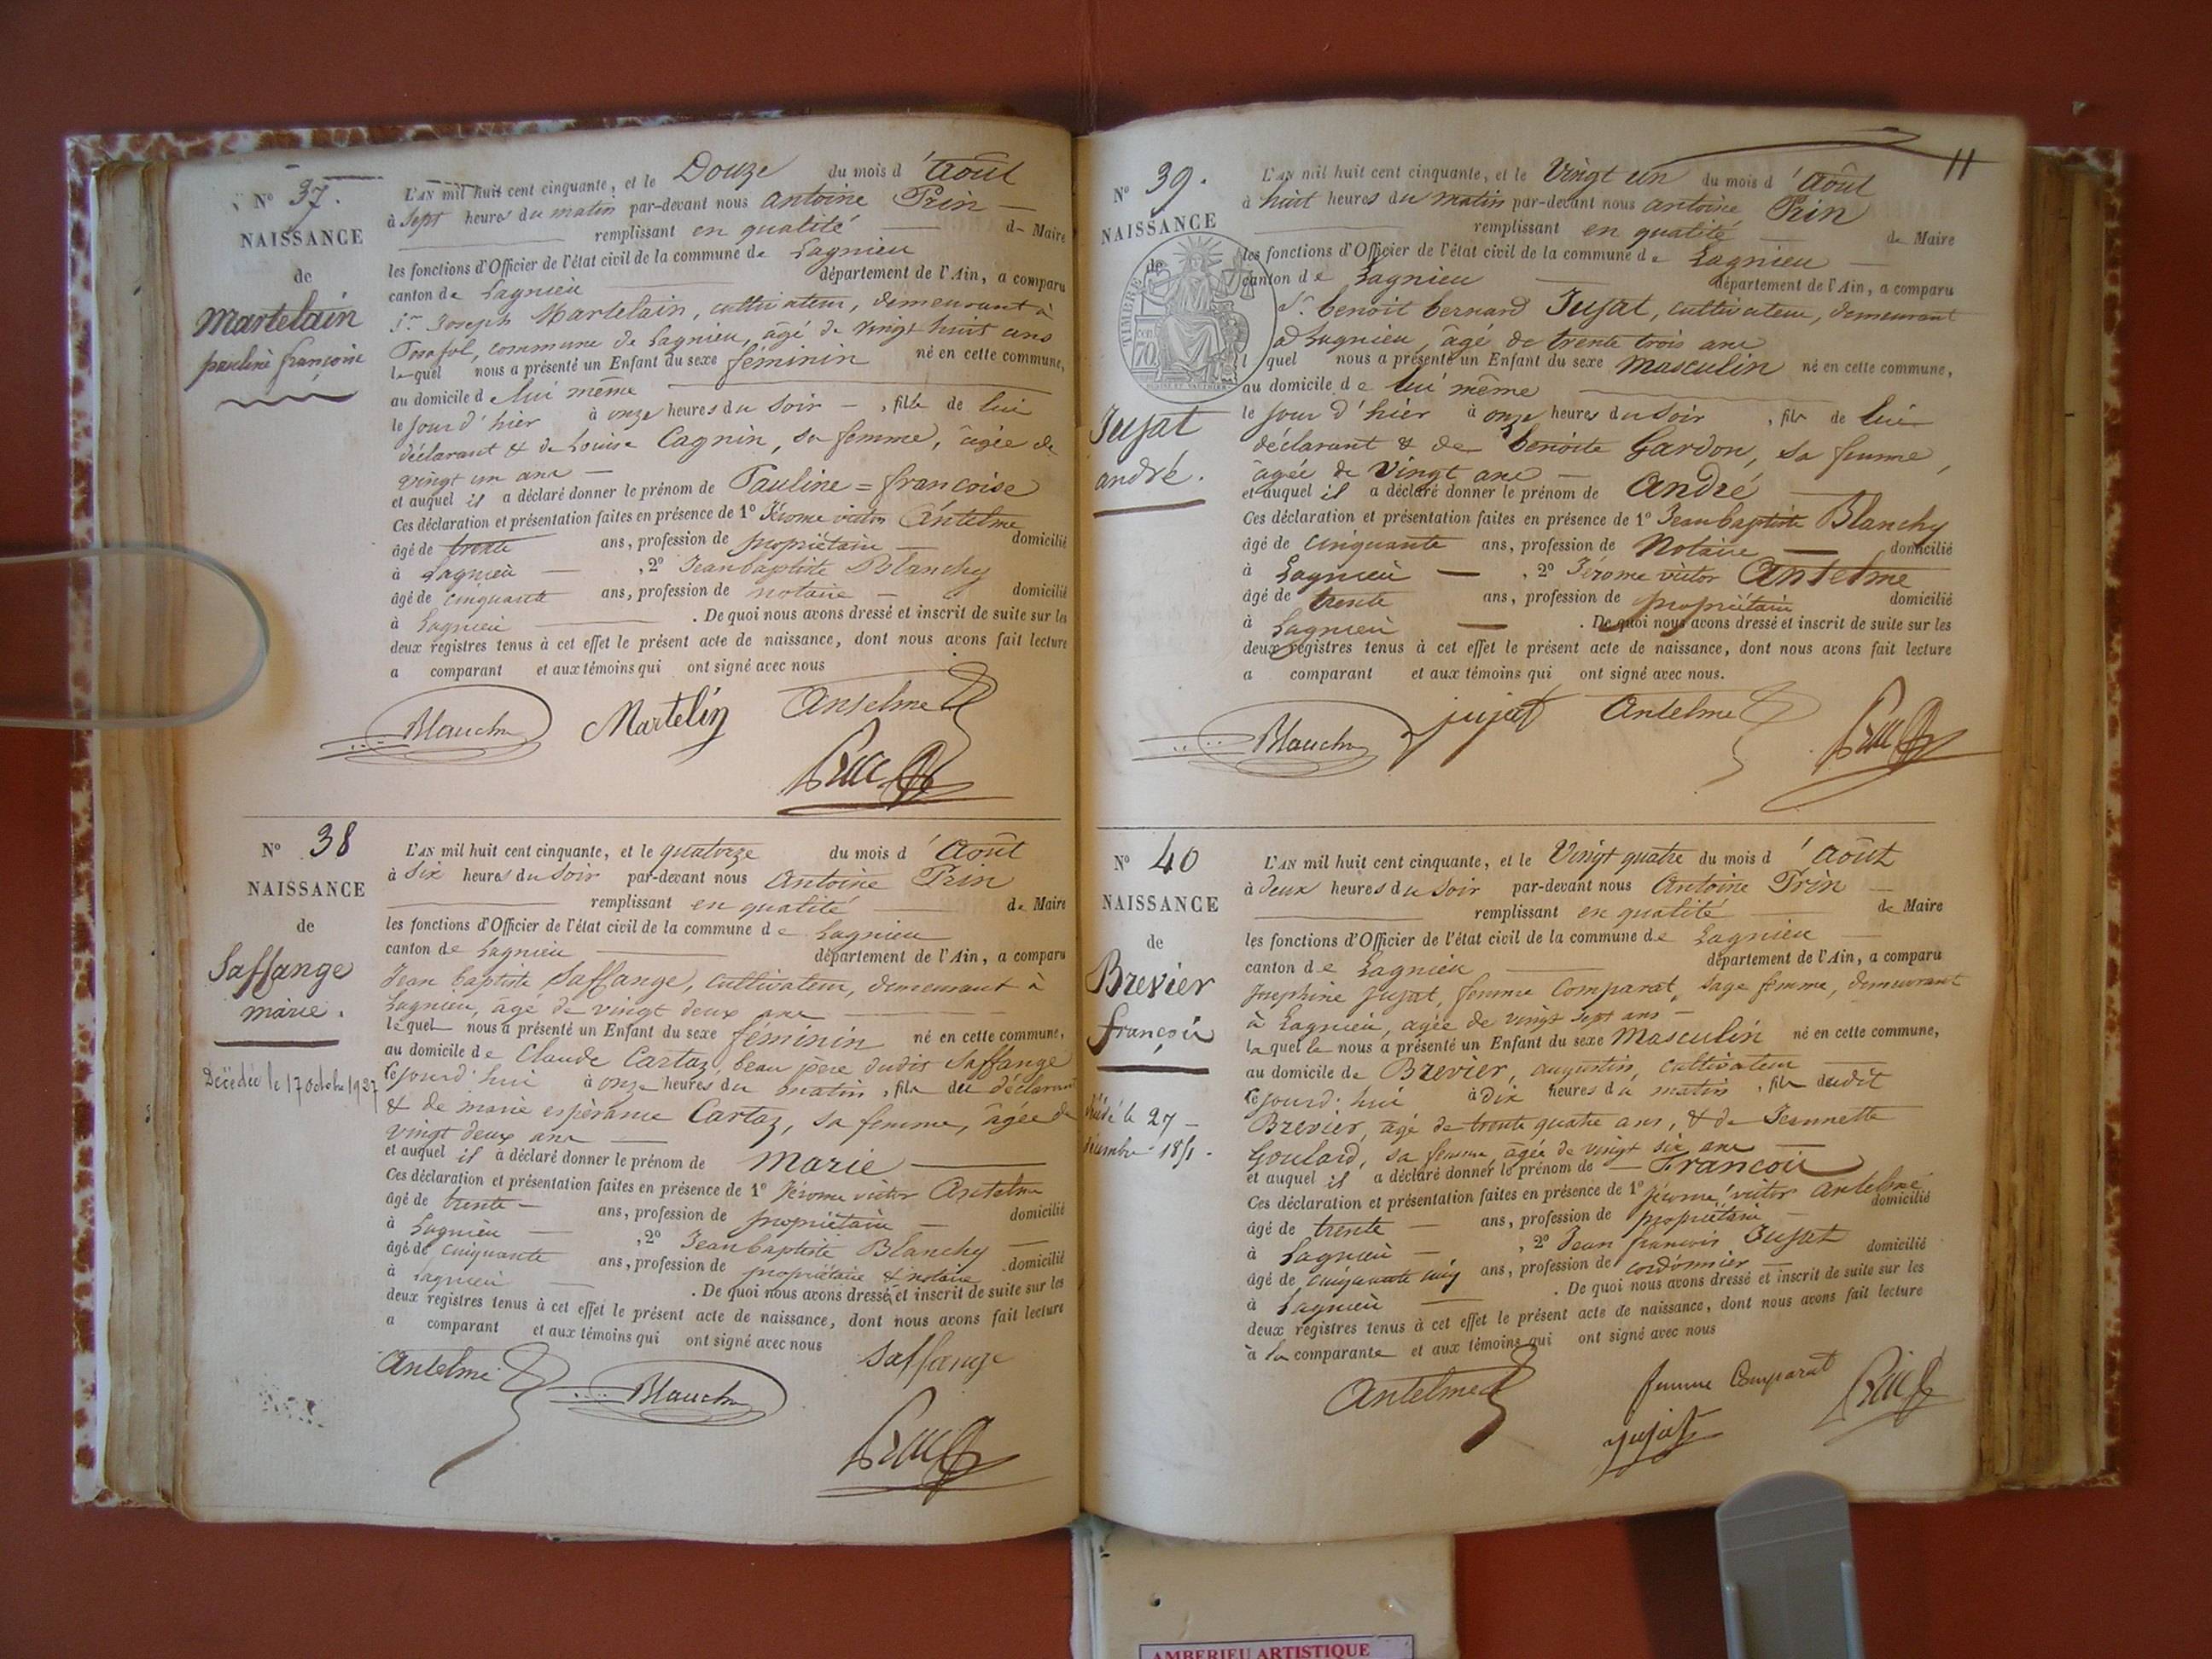 N° 37.
NAISSANCE
de
Martelain
pauline françoise
L'AN mil huit cent cinquante, et le Douze du mois d'Août
à Sept heures du matin par-devant nous antoine Prin
remplissant en qualité de Maire
les fonctions d'Officier de l'état civil de la commune de Lagnieu
canton de Lagnieu département de l'Ain, a comparu
Sr Joseph Martelain, cultivateur, demeurant à
Posafol, commune de Lagnieu, âgé de vingt huit ans
lequel nous a présenté un Enfant du sexe féminin né en cette commune,
au domicile de lui même
le jour d'hier à onze heures du Soir, fille de lui
déclarant & de Louise Cagnin, sa femme, âgée de
vingt un ans
et auquel il a déclaré donner le prénom de Pauline = françoise
Ces déclaration et présentation faites en présence de 1° Jérome victor Antelme
âgé de trente ans, profession de propriétaire domicilié
à Lagnieu, 2° Jean baptiste Blanchy
âgé de cinquante ans, profession de notaire domicilié
à Lagnieu. De quoi nous avons dressé et inscrit de suite sur les
deux registres tenus à cet effet le présent acte de naissance, dont nous avons fait lecture
a comparant et aux témoins qui ont signé avec nous
Blanchy Martelin Antelme
Prin
N° 38
NAISSANCE
de
Saffange
marie.
Décédée le 17 octobre 1937
L'AN mil huit cent cinquante, et le quatorze du mois d'Août
à Six heures du Soir par-devant nous Antoine Prin
remplissant en qualité de Maire
les fonctions d'Officier de l'état civil de la commune de Lagnieu
canton de Lagnieu département de l'Ain, a comparu
Jean baptiste Saffange, cultivateur, demeurant à
Lagnieu, âgé de vingt deux ans
lequel nous a présenté un Enfant du sexe féminin né en cette commune,
au domicile de Claude Cartaz, beau père dudit Saffange
cejourd'hui à onze heures du matin, fille du déclarant
& de marie espérance Cartaz, sa femme, âgée de
vingt deux ans
et auquel il a déclaré donner le prénom de Marie
Ces déclaration et présentation faites en présence de 1° Jérome victor Antelme
âgé de trente ans, profession de propriétaire domicilié
à Lagnieu, 2° Jean baptiste Blanchy
âgé de cinquante ans, profession de propriétaire & notaire domicilié
à Lagnieu. De quoi nous avons dressé et inscrit de suite sur les
deux registres tenus à cet effet le présent acte de naissance, dont nous avons fait lecture
a comparant et aux témoins qui ont signé avec nous
Antelme Blanchy Saffange
Prin
11
N° 39.
NAISSANCE
de
TIMBRE
70
Jujat
andré.
L'AN mil huit cent cinquante, et le Vingt un du mois d'Août
à huit heures du matin par-devant nous antoine Prin
remplissant en qualité de Maire
les fonctions d'Officier de l'état civil de la commune de Lagnieu
canton de Lagnieu département de l'Ain, a comparu
Sr benoit bernard Jujat, cultivateur, demeurant
à Lagnieu, âgé de trente trois ans
lequel nous a présenté un Enfant du sexe Masculin né en cette commune,
au domicile de lui même
le jour d'hier à onze heures du Soir, fils de lui
déclarant & de benoite Gardon, sa femme,
âgée de Vingt ans
et auquel il a déclaré donner le prénom de André
Ces déclaration et présentation faites en présence de 1° Jean baptiste Blanchy
âgé de cinquante ans, profession de Notaire domicilié
à Lagnieu, 2° Jérome victor Antelme
âgé de trente ans, profession de propriétaire domicilié
à Lagnieu. De quoi nous avons dressé et inscrit de suite sur les
deux registres tenus à cet effet le présent acte de naissance, dont nous avons fait lecture
a comparant et aux témoins qui ont signé avec nous.
Blanchy jujat Antelme Prin
N° 40
NAISSANCE
de
Brevier
françois
décédé le 27
décembre 1851.
L'AN mil huit cent cinquante, et le Vingt quatre du mois d'Août
à deux heures du Soir par-devant nous Antoine Prin
remplissant en qualité de Maire
les fonctions d'Officier de l'état civil de la commune de Lagnieu
canton de Lagnieu département de l'Ain, a comparu
Josephine Jujat, femme Comparat, Sage femme, demeurant
à Lagnieu, agée de vingt sept ans
laquelle nous a présenté un Enfant du sexe Masculin né en cette commune,
au domicile de Brevier, augustin, cultivateur
cejourd'hui à dix heures du matin, fils dudit
Brevier, âgé de trente quatre ans, & de Jeannette
Goulard, sa femme, âgée de vingt six ans
et auquel il a déclaré donner le prénom de François
Ces déclaration et présentation faites en présence de 1° Jérome victor Antelme
âgé de trente ans, profession de propriétaire domicilié
à Lagnieu, 2° Jean françois Jujat
âgé de cinquante cinq ans, profession de cordonnier domicilié
à Lagnieu. De quoi nous avons dressé et inscrit de suite sur les
deux registres tenus à cet effet le présent acte de naissance, dont nous avons fait lecture
à la comparante et aux témoins qui ont signé avec nous
Antelme femme Comparat Prin
jujat
AMBERIEU ARTISTIQUE